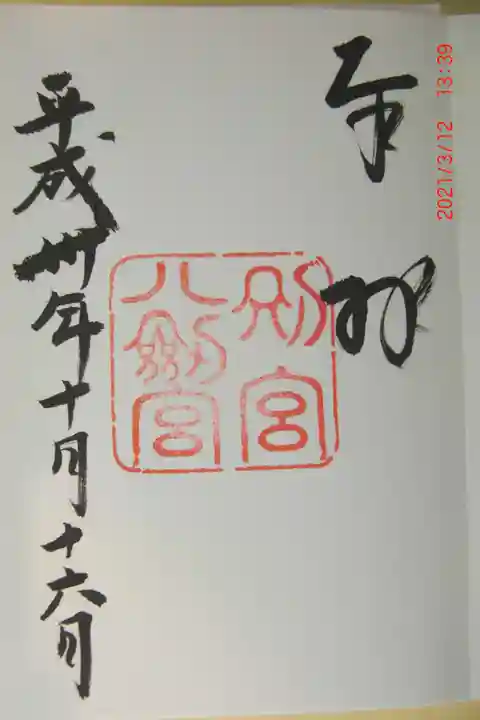 奉拝
別宮
八剱宮
平成卅年十月十六日
2021/3/12 13:39